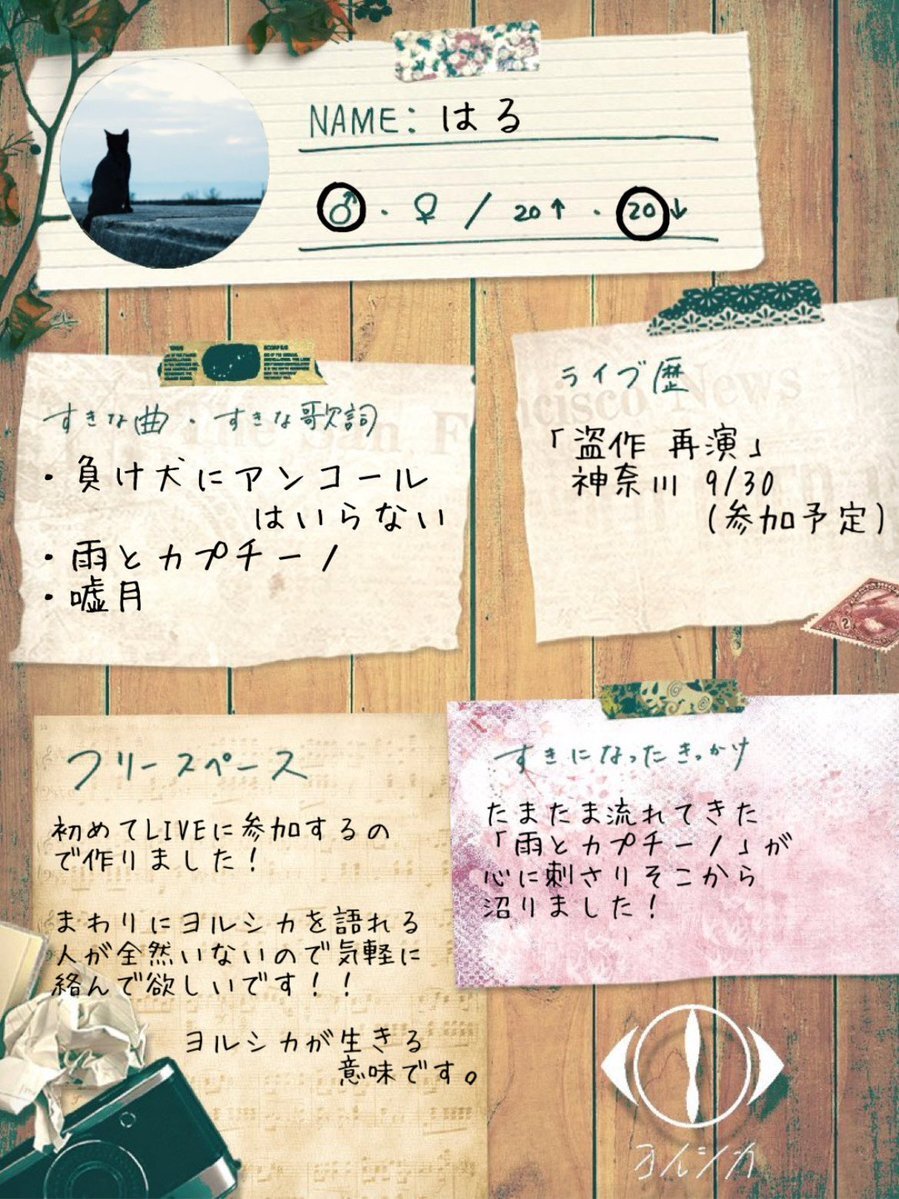 NAME: はる
♂・♀ / 20↑・20↓
すきな曲・すきな歌詞
・負け犬にアンコール
はいらない
・雨とカプチーノ
・嘘月
ライブ歴
「盗作 再演」
神奈川 9/30
(参加予定)
フリースペース
初めてLIVEに参加するの
で作りました！
まわりにヨルシカを語れる
人が全然いないので気軽に
絡んで欲しいです！！
ヨルシカが生きる
意味です。
すきになったきっかけ
たまたま流れてきた
「雨とカプチーノ」が
心に刺さりそこから
沼りました！
ヨルシカ